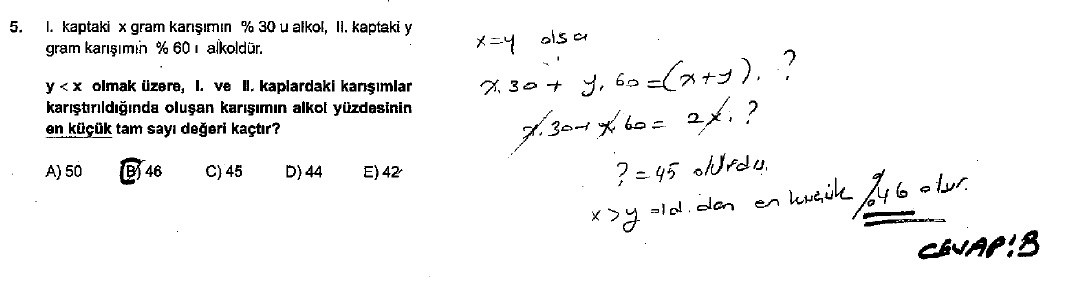 5. I. kaptaki x gram karışımın % 30 u alkol, II. kaptaki y
gram karışımın % 60 ı alkoldür.
y < x olmak üzere, I. ve II. kaplardaki karışımlar
karıştırıldığında oluşan karışımın alkol yüzdesinin
en küçük tam sayı değeri kaçtır?
A) 50 B) 46 C) 45 D) 44 E) 42
x=y olsa
x.30 + y.60 = (x+y).?
x.30+x.60 = 2x.?
? = 45 olurdu.
x>y old.dan en küçük %46 olur.
CEVAP:B